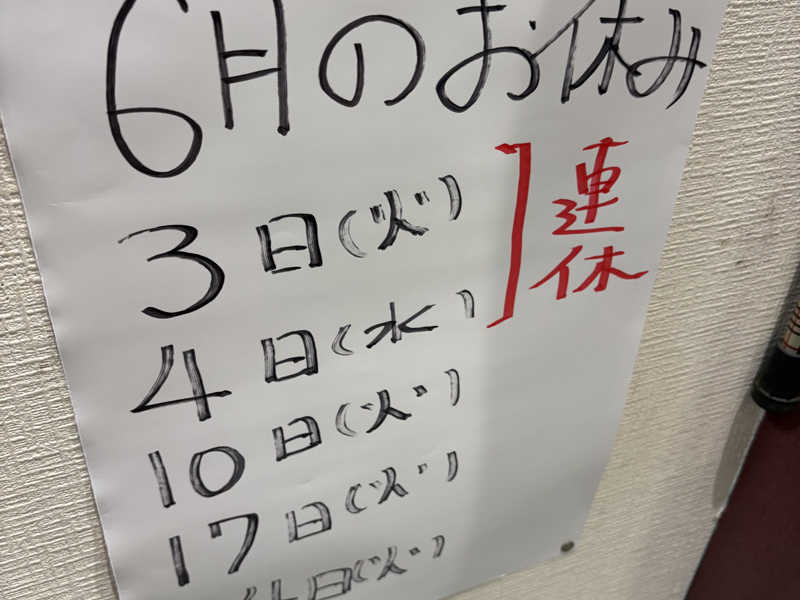 6月のお休み
3日(火)
4日(水)
連休
10日(火)
17日(火)
日(火)